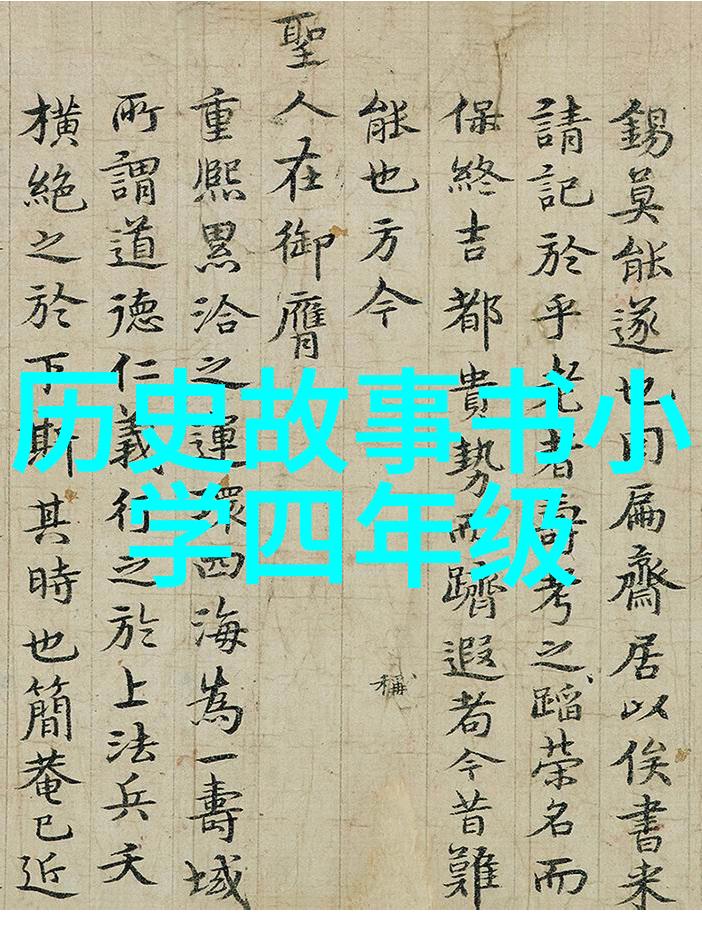 錫莫能遂也用扁齋居以俟書来
請記於乎老者壽考之蹈荣名而
保終吉都貴勢而躋遐者今昔難
能也方今
稱
聖人在御膺
重熈累洽之運環四海為一壽域
所謂道德仁義行之於上法兵夭
横絶之於下斯其時也簡菴已近
历史故事书小
学四年级